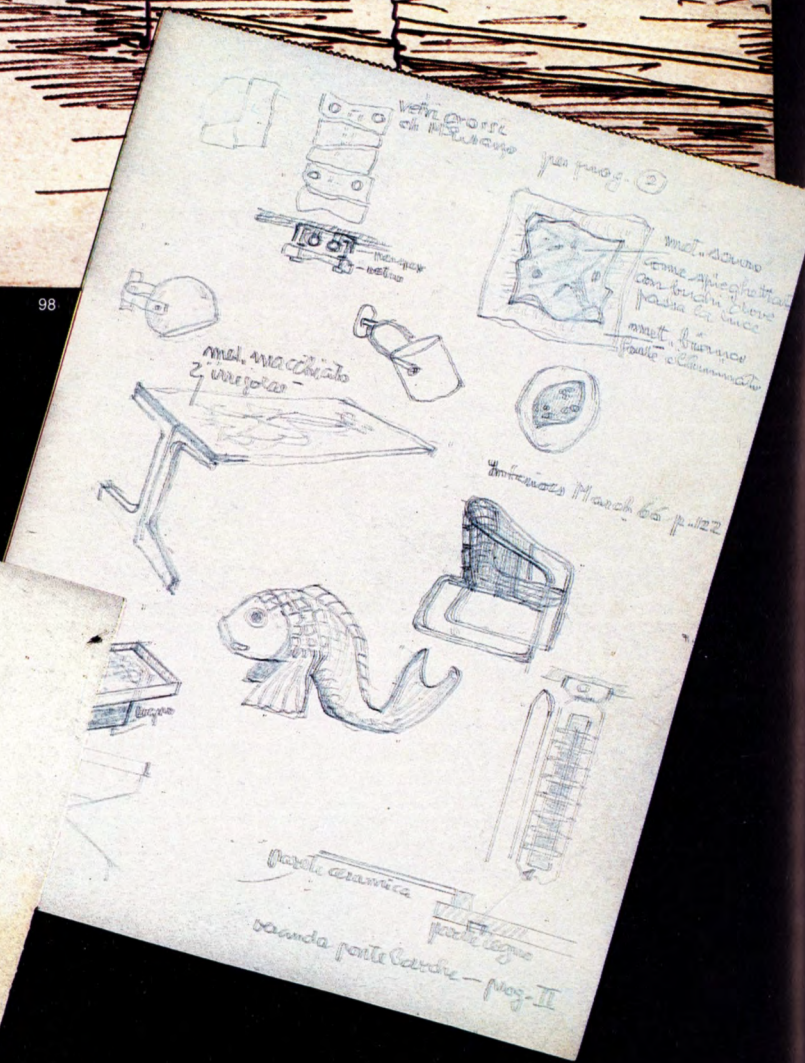 vetri grossi
di Murano
per prog. 2
nero
vetro
met. scuro
come spieghettato
con buchi dove
passa la luce
met. bianco
forte illuminato
98
met. macchiato
irregolare
Interiors March 66 p. 122
legno
parete ceramica
parte legno
veranda ponte barche – prog. II